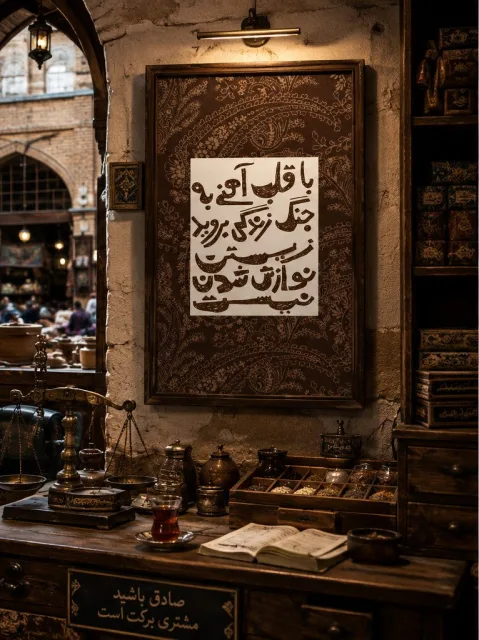 با قلب آهنی به
جنگ زندگی بروید
زیستن
نوازش شدن
نیست
صادق باشید
مشتری برکت است